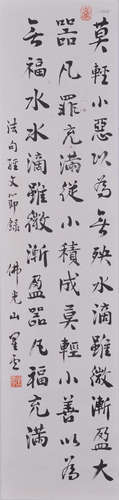 莫輕小惡以為無殃水滴雖微漸盈大
器凡罪充滿從小積成莫輕小善以為
無福水水滴雖微漸盈器凡福充滿
法句經文節錄
佛光山星雲